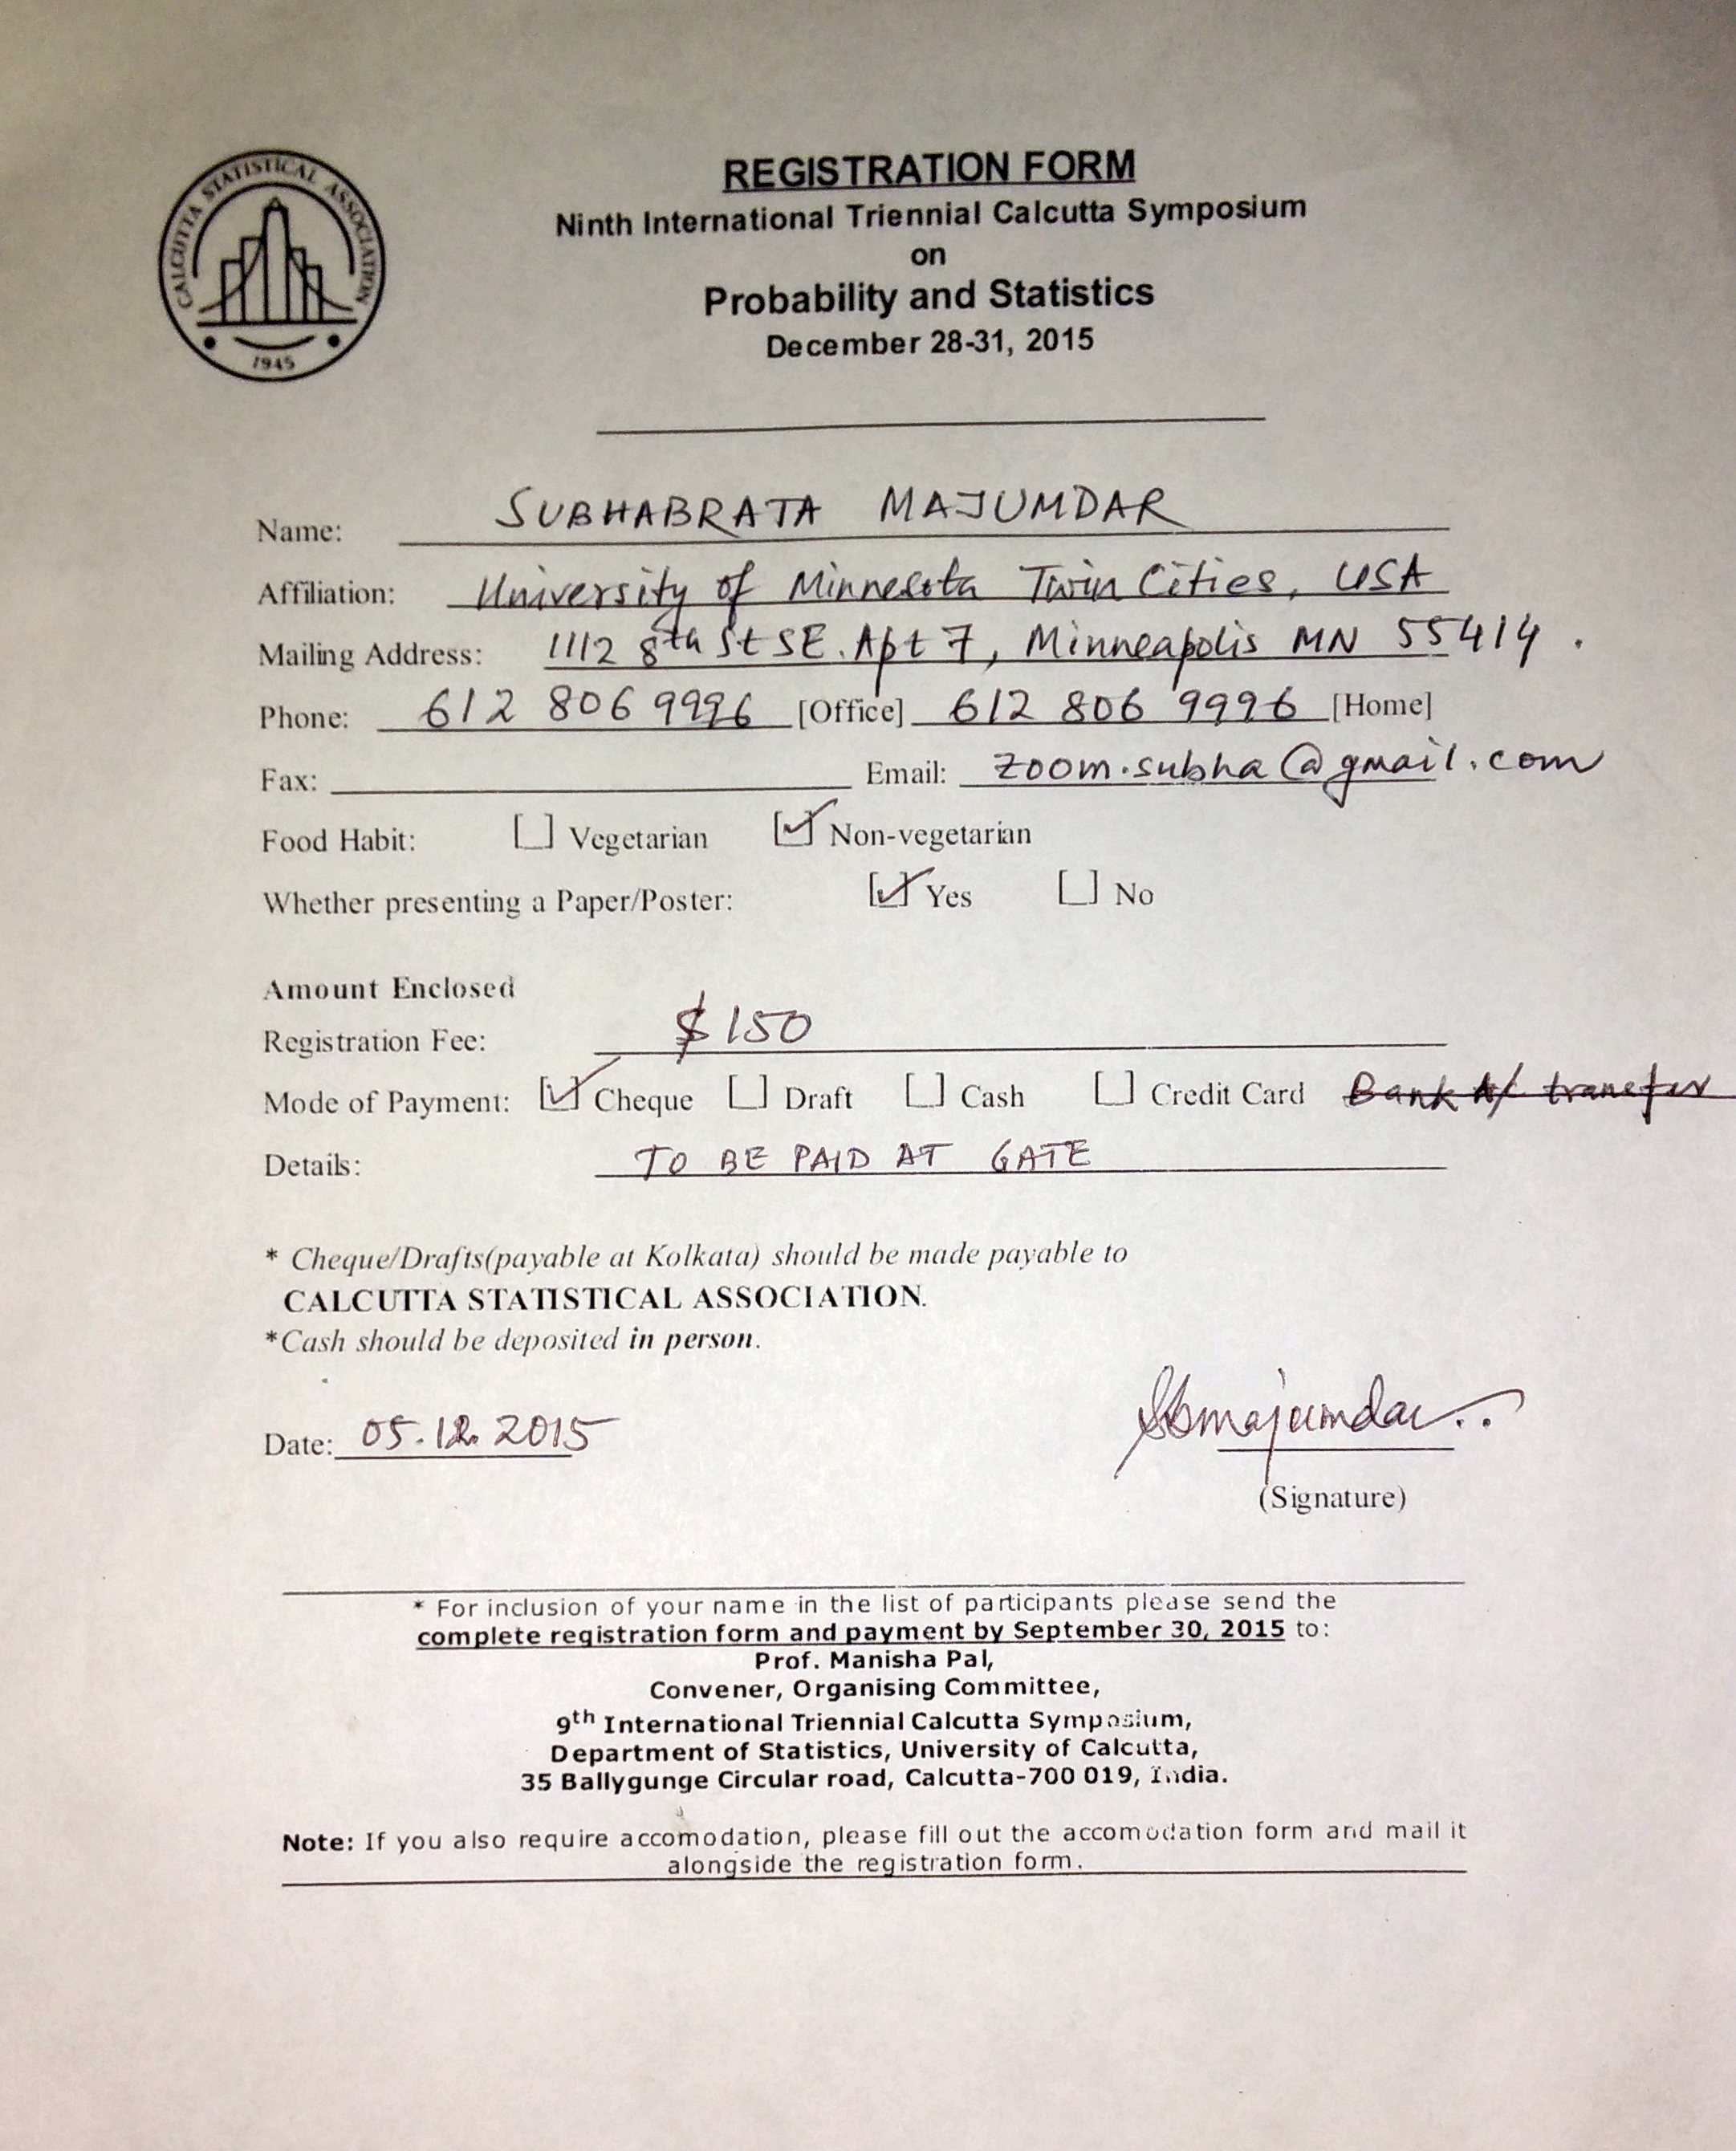 CALCUTTA STATISTICAL ASSOCIATION
1945
REGISTRATION FORM
Ninth International Triennial Calcutta Symposium
on
Probability and Statistics
December 28-31, 2015
Name: SUBHABRATA MAJUMDAR
Affiliation: University of Minnesota Twin Cities, USA
Mailing Address: 1112 8th St SE. Apt 7, Minneapolis MN 55414.
Phone: 612 806 9996 [Office] 612 806 9996 [Home]
Fax: Email: zoom.subha@gmail.com
Food Habit: [ ] Vegetarian [✓] Non-vegetarian
Whether presenting a Paper/Poster: [✓] Yes [ ] No
Amount Enclosed
Registration Fee: $150
Mode of Payment: [✓] Cheque [ ] Draft [ ] Cash [ ] Credit Card Bank A/c transfer
Details: TO BE PAID AT GATE
* Cheque/Drafts(payable at Kolkata) should be made payable to
CALCUTTA STATISTICAL ASSOCIATION.
*Cash should be deposited in person.
Date: 05.12.2015 Sbmajumdar..
(Signature)
* For inclusion of your name in the list of participants please send the
complete registration form and payment by September 30, 2015 to:
Prof. Manisha Pal,
Convener, Organising Committee,
9th International Triennial Calcutta Symposium,
Department of Statistics, University of Calcutta,
35 Ballygunge Circular road, Calcutta-700 019, India.
Note: If you also require accomodation, please fill out the accomodation form and mail it
alongside the registration form.